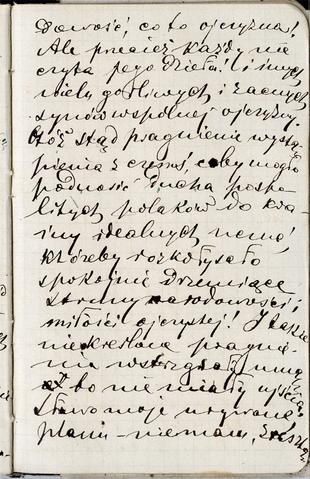 dowość, co to ojczyzna!
Ale przecież każdy nie
czyta jego dzieła! i innych
wielu gorliwych i zacnych
synów wspólnej ojczyzny.
Otóż stąd pragnienie wystą-
pienia z czemś, coby mogło
podnosić ducha pospo-
litych polaków do kra-
iny idealnych
któreby rozkołysało
spokojnie drzemiące
struny narodowości i
miłości ojczystej! I takie
nieokreślone pragnie-
nia wstrząsały mną
to nie miały ujścia
Słowo moje urywane
planu - niemam,